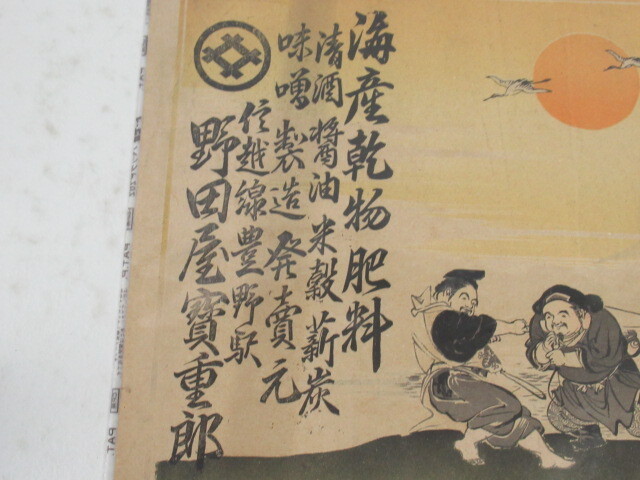 海産乾物肥料
清酒醬油米穀薪炭
味噌製造発賣元
信越線豊野駅
野田屋寶重郎